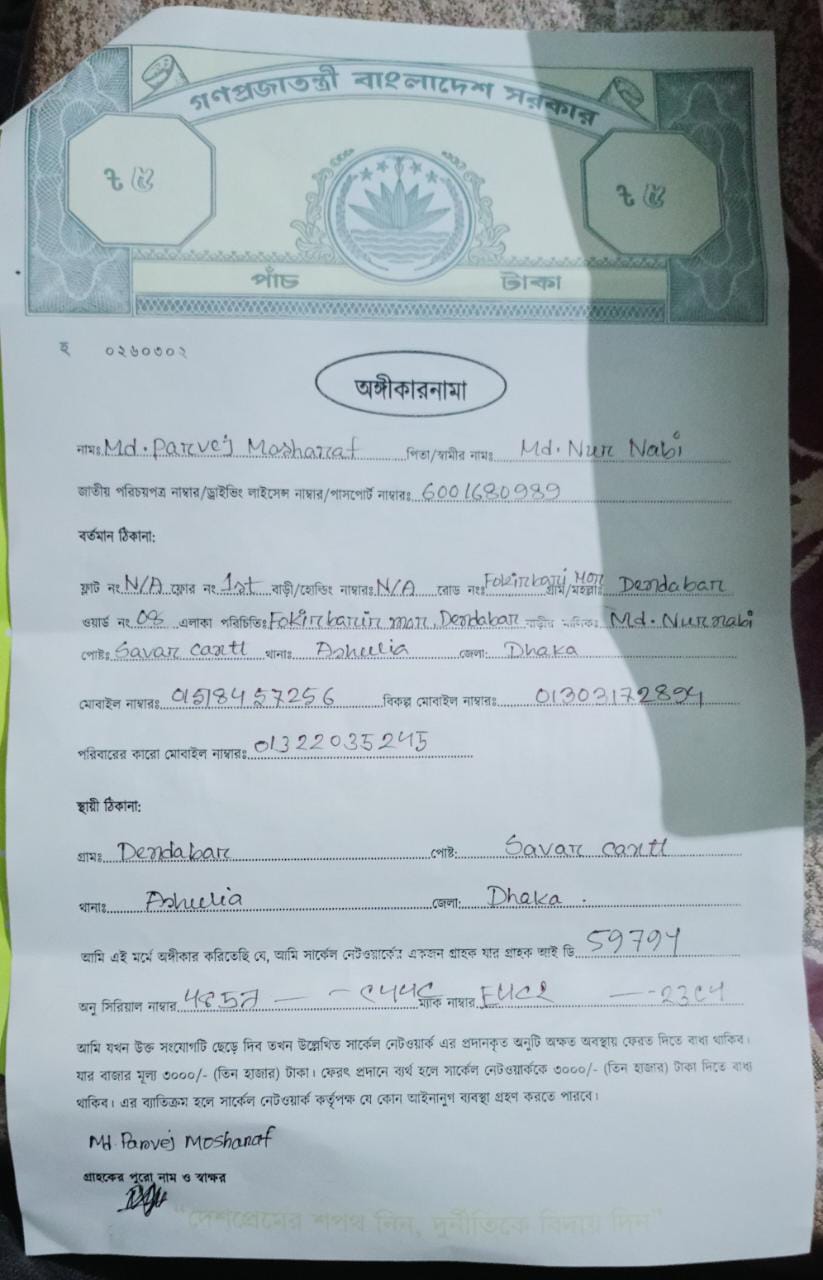 গণপ্রজাতন্ত্রী বাংলাদেশ সরকার
৳ ৫ ৳ ৫
পাঁচ টাকা
হ ০২৬০৩০২
অঙ্গীকারনামা
নামঃ Md. Parvej Mosharraf পিতা/স্বামীর নামঃ Md. Nur Nabi
জাতীয় পরিচয়পত্র নাম্বার/ড্রাইভিং লাইসেন্স নাম্বার/পাসপোর্ট নাম্বারঃ 6001680989
বর্তমান ঠিকানা:
ফ্লাট নং N/A ফ্লোর নং 1st বাড়ী/হোল্ডিং নাম্বারঃ N/A রোড নং গ্রাম/মহল্লাঃ Dendabar
ওয়ার্ড নং 08 এলাকা পরিচিতিঃ Dendabar বাড়ীর মালিকঃ Md. Nurnabi
পোষ্টঃ Savar cantt থানাঃ Ashulia জেলা: Dhaka
মোবাইল নাম্বারঃ 01518457256 বিকল্প মোবাইল নাম্বারঃ 01303172894
পরিবারের কারো মোবাইল নাম্বারঃ 01322035245
স্থায়ী ঠিকানা:
গ্রামঃ Dendabar পোষ্ট: Savar cantt
থানাঃ Ashulia জেলা: Dhaka.
আমি এই মর্মে অঙ্গীকার করিতেছি যে, আমি সার্কেল নেটওয়ার্কের একজন গ্রাহক যার গ্রাহক আই ডি 59794
অনু সিরিয়াল নাম্বার ম্যাক নাম্বার
আমি যখন উক্ত সংযোগটি ছেড়ে দিব তখন উল্লেখিত সার্কেল নেটওয়ার্ক এর প্রদানকৃত অনুটি অক্ষত অবস্থায় ফেরত দিতে বাধ্য থাকিব।
যার বাজার মূল্য ৩০০০/- (তিন হাজার) টাকা। ফেরৎ প্রদানে ব্যর্থ হলে সার্কেল নেটওয়ার্ককে ৩০০০/- (তিন হাজার) টাকা দিতে বাধ্য
থাকিব। এর ব্যতিক্রম হলে সার্কেল নেটওয়ার্ক কর্তৃপক্ষ যে কোন আইনানুগ ব্যবস্থা গ্রহণ করতে পারবে।
Md. Parvej Mosharraf
গ্রাহকের পুরো নাম ও স্বাক্ষর
"দেশপ্রেমের শপথ নিন, দুর্নীতিকে বিদায় দিন"